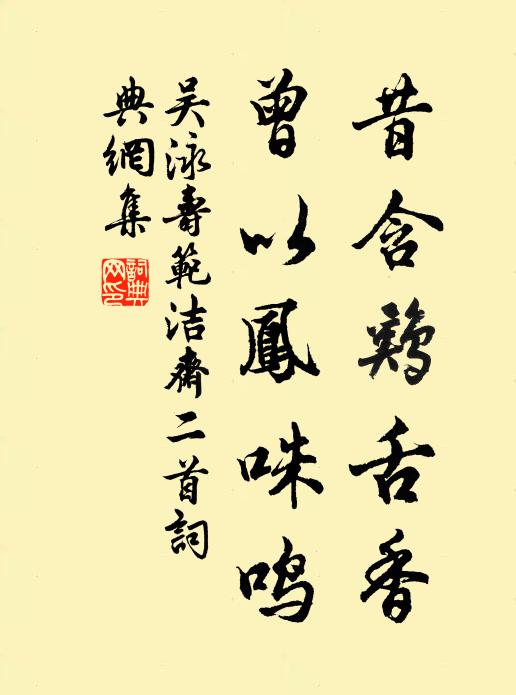 昔含鷄舌香
曾以鳳咮鳴
吴泳壽範洁齋二首詞
典網集
詞典网印